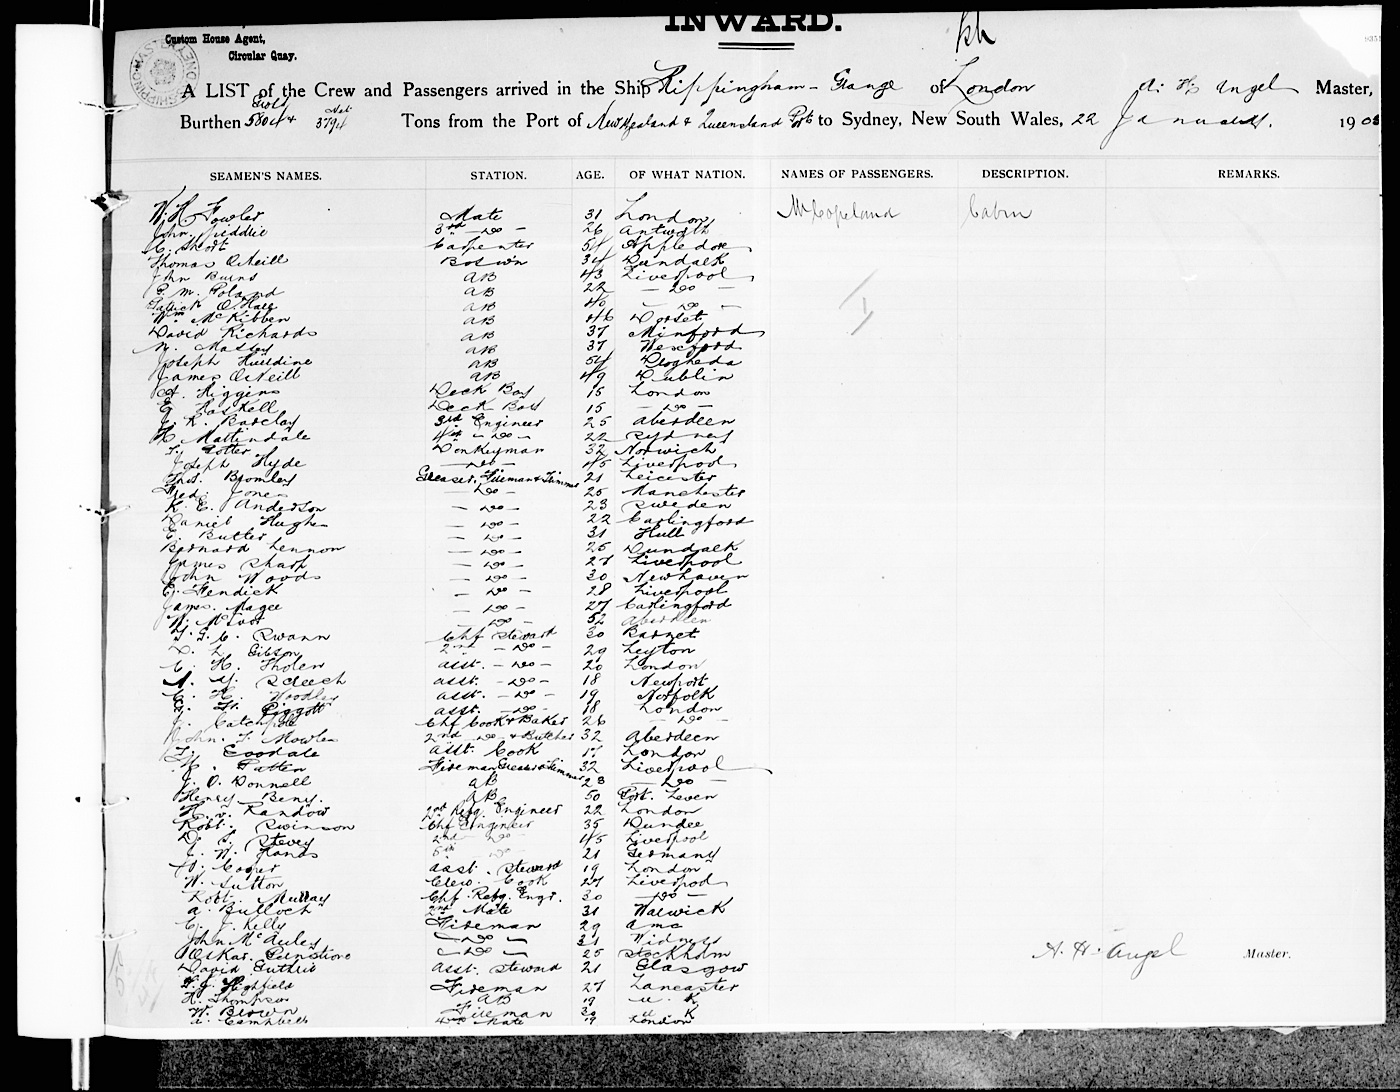 INWARD.
Custom House Agent,
Circular Quay.
A LIST of the Crew and Passengers arrived in the Ship Rippingham Grange of London A. H. Angel Master,
Burthen 5804 3794 Tons from the Port of New Zealand & Queensland Pts to Sydney, New South Wales, 22 January. 190
SEAMEN'S NAMES. STATION. AGE. OF WHAT NATION. NAMES OF PASSENGERS. DESCRIPTION. REMARKS.
W. H. Fowler Mate 31 London Mr Copeland Cabin
Jno. Jeddie 3rd — Do — 26 Antwerp
C. Short Carpenter 54 Appledore
Thomas O'Neill Bos'wn 34 Dundalk
John Burns AB 43 Liverpool
E. M. Poland AB 22 — Do —
Patrick O'Hare AB 46 — Do —
Wm McKibben AB 46 Dorset
David Richards AB 37 Minford
W. Masley AB 37 Wexford
Joseph AB 54 Drogheda
James O'Neill AB 49 Dublin
A. Higgins Deck Boy 16 London
E. Haskell Deck Boy 15 — Do —
J. R. Barclay 3rd Engineer 25 Aberdeen
H. Mattindale 4th — Do — 22 Sydney
Donkeyman 32 Norwich
Joseph Hyde — Do — 45 Liverpool
Thos. Bromley Greaser, Fireman & Trimmer 21 Leicester
Fred Jones — Do — 25 Manchester
K. E. Anderson — Do — 23 Sweden
Daniel Hughes — Do — 22 Carlingford
E. Butler — Do — 31 Hull
Bernard Lennon — Do — 25 Dundalk
James Sharp — Do — 27 Liverpool
John Woods — Do — 30 Newhaven
E. Fendick — Do — 28 Liverpool
James Magee — Do — 27 Carlingford
W. McIvor — Do — 52 Aberdeen
T. F. C. Swann Chf Steward 30 Barnet
L. Gibson 2nd — Do — 29 Leyton
C. H. Tholen asst. — Do — 20 London
A. Y. Screech asst. — Do — 18 Newport
C. H. Woodley asst. — Do — 19 Norfolk
Piggott asst. — Do — 18 London
J. Catchpole Chf Cook & Baker 26 — Do —
John. T. Mowlem 2nd — Do — & Butcher 32 Aberdeen
Coodale asst. Cook 17 London
H. Patten Fireman Greaser & Trimmer 32 Liverpool
J. O'Donnell AB 28 — Do —
Henry Beny. AB 50 Port. Leven
H. v. Randow 2nd Refg. Engineer 22 London
Robt. Swinson Chf Engineer 35 Dundee
D. S. Stevey 2nd Do 45 Liverpool
J. W. Hands 5th Do 21 Germany
W. Cooper asst. Steward 19 London
W. Sutton Crew. Cook 27 Liverpool
Robt. Murray Chf. Refg. Engr. 30 — Do —
A. Bulloch 2nd Mate 31 Warwick
C. J. Kelly Fireman 29 amc
John McAuley — Do — 31 Widness
Oskar — Do — 25 Stockholm
David Guthrie asst. Steward 21 Glasgow
F. J. Highfield Fireman 27 Lancaster
H. Thompson AB 19 U. K
W. Brown Fireman 30 U K
A. Campbell 4th Mate 19 London
A. H. Angel Master.